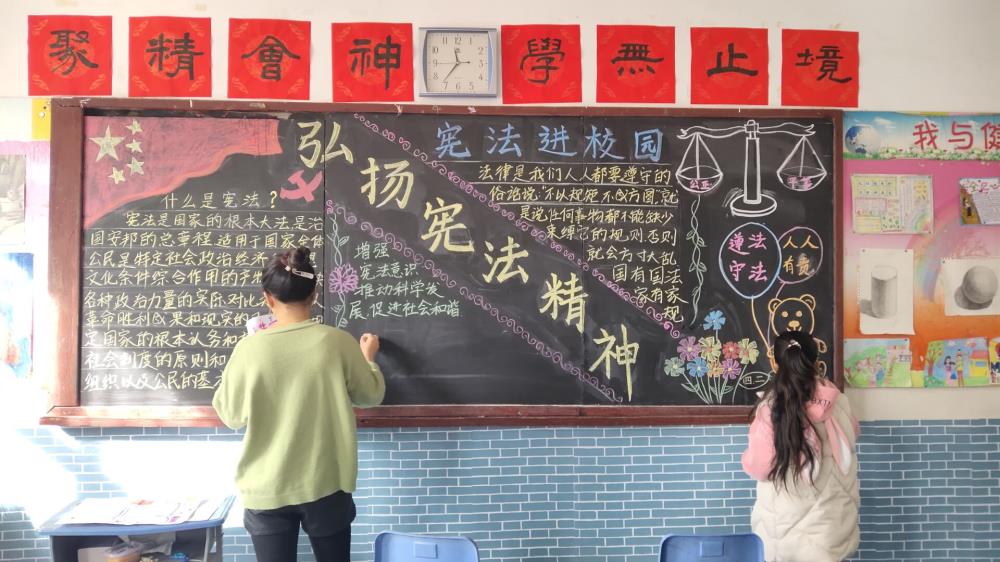 聚精會神
學無止境
我与健
弘扬宪法精神
宪法进校园
什么是宪法？
宪法是国家的根本大法,是治
国安邦的总章程,适用于国家全体
公民,是特定社会政治经济
文化条件综合作用的产物
各种政治力量的实际对比
革命胜利成果和现实的
定国家的根本认务和
社会制度的原则和
组织以及公民的基
增强
宪法意识
推动科学发
展,促进社会和谐
法律是我们人人都要遵守的
俗话说:"不以规矩不成方圆"就
是说任何事物都不能缺少
束缚它的规则,否则
就会方寸大乱
国有国法
家有家
规
公正
平等
遵法
守法
人人
有责
四.二